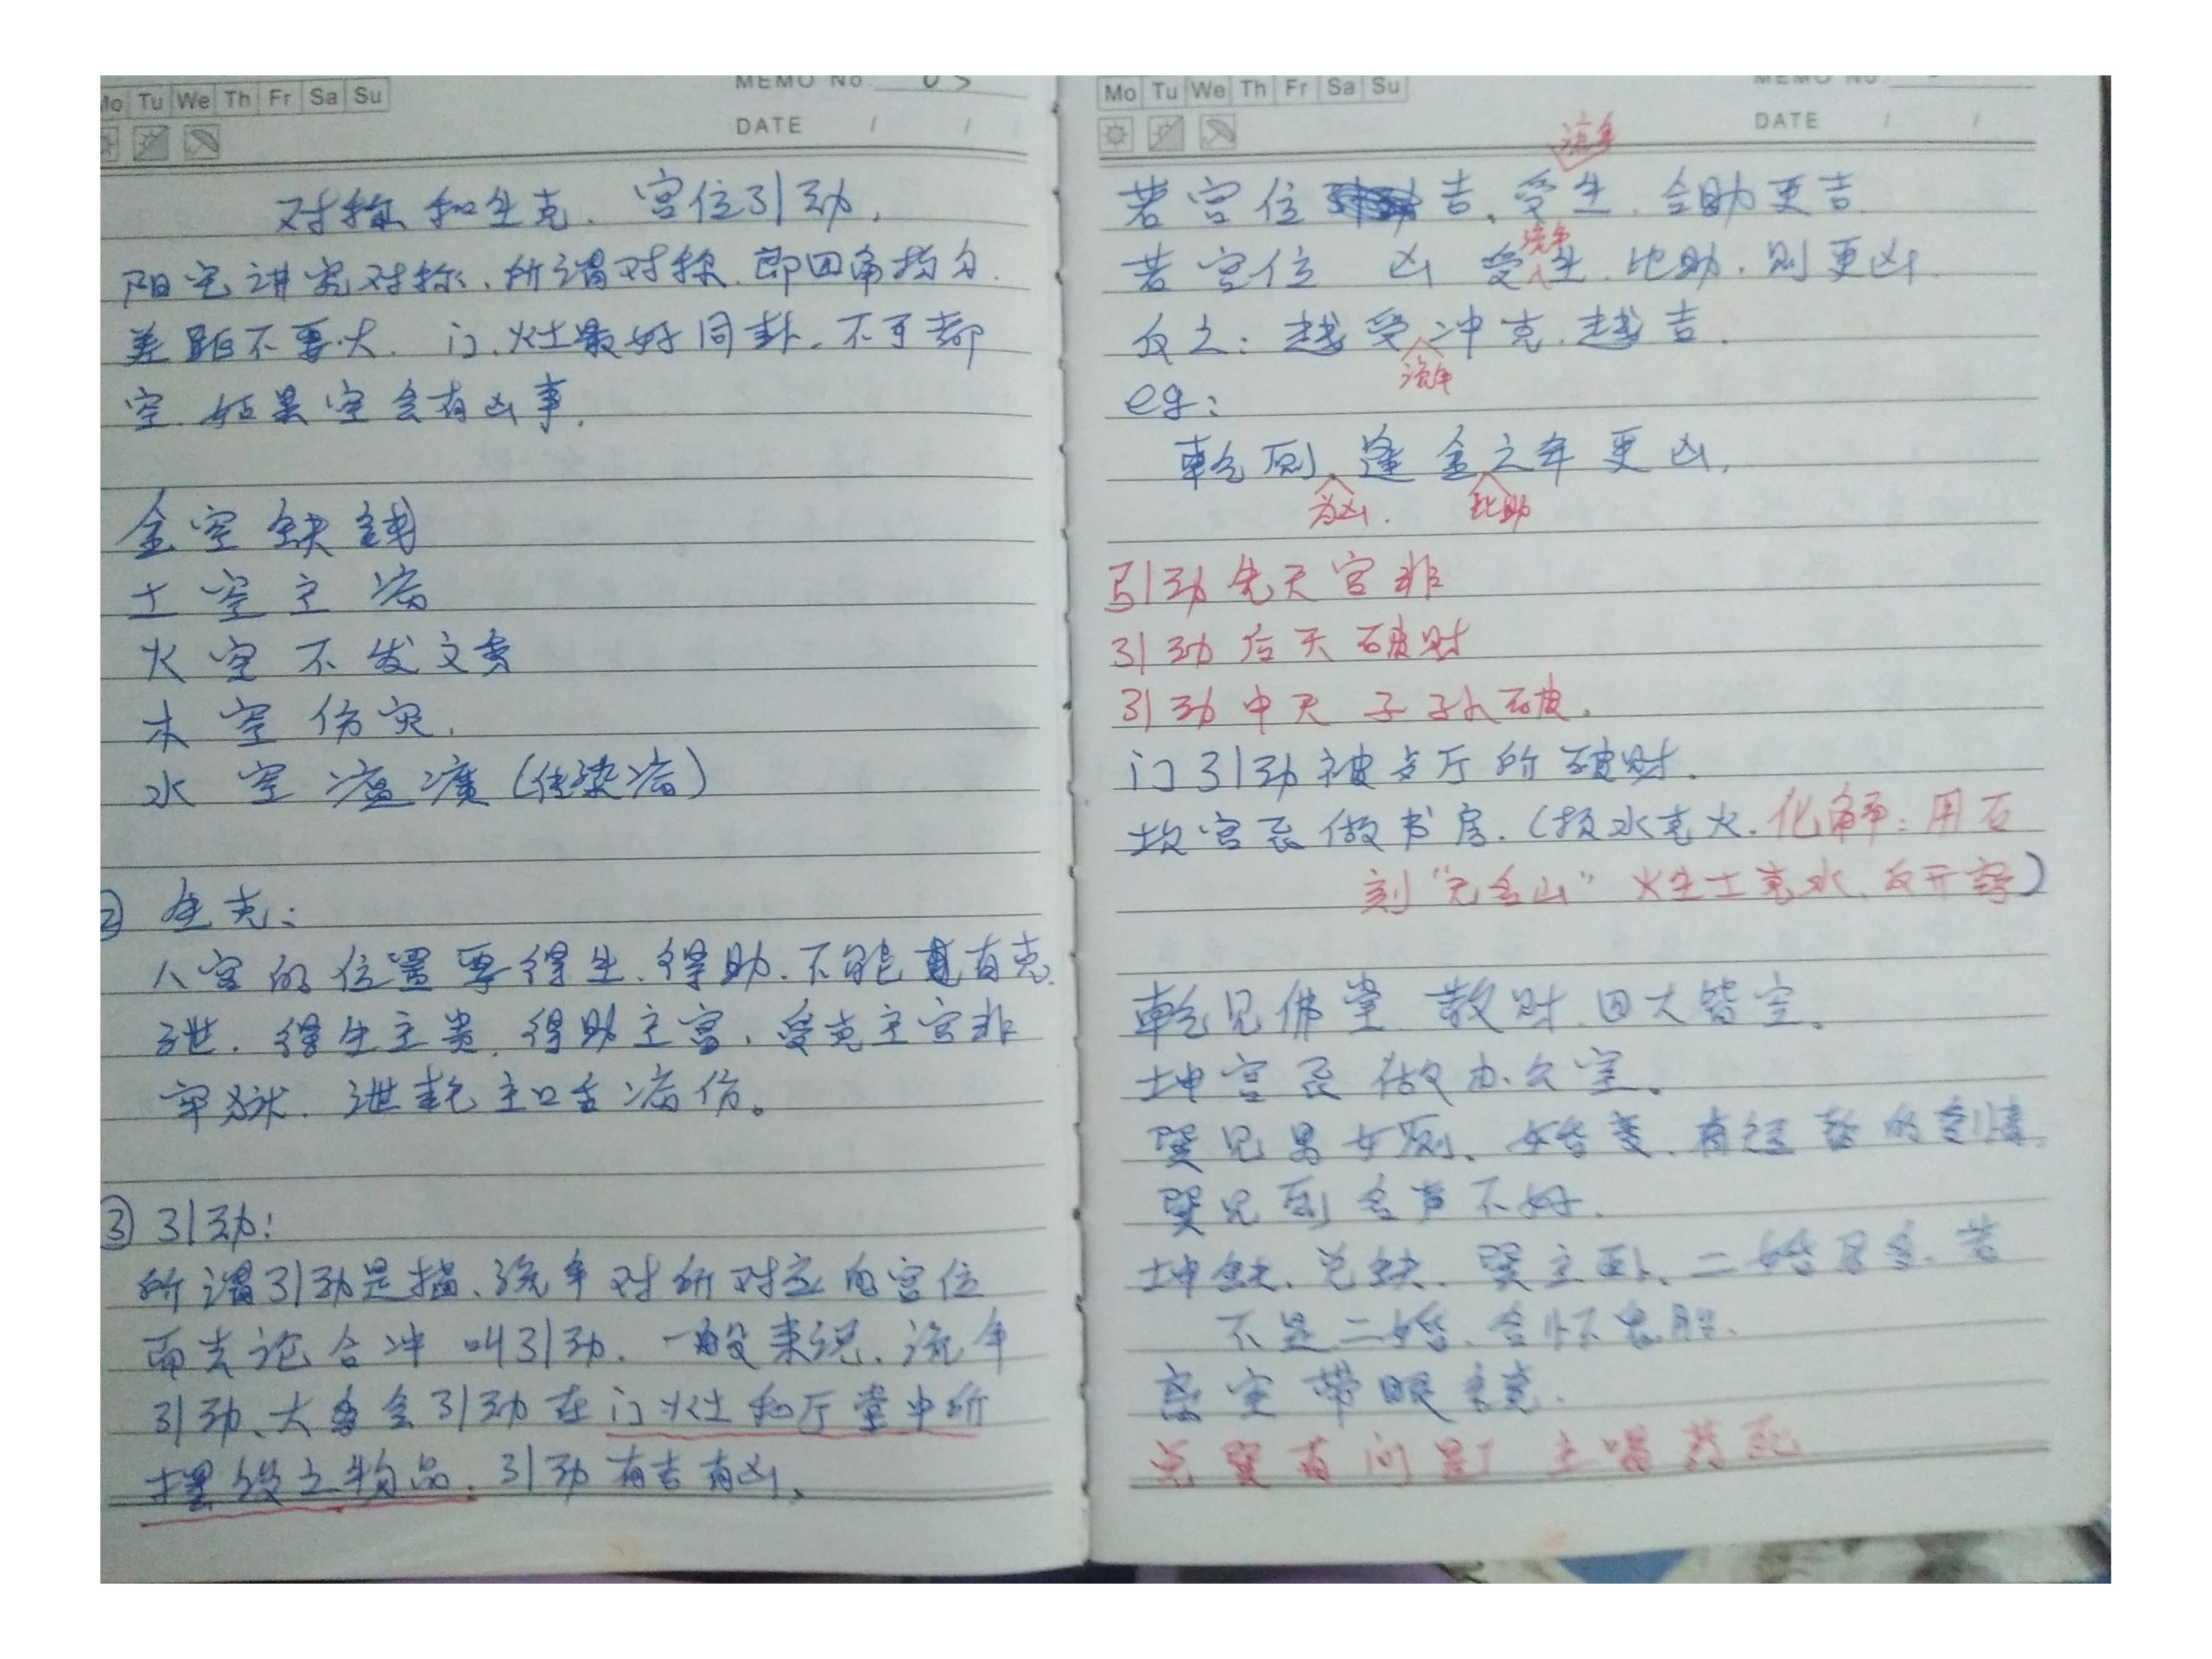 Mo Tu We Th Fr Sa Su
MEMO No. 03
DATE / /
对称和生克、宫位引动,
阳宅讲究对称、所谓对称、即四角均匀.
差距不要大. 门、灶最好同卦. 不可都
空. 如果空会有凶事.
金空缺钱
土空主病
火空不发文秀
木空伤灾.
水空瘟㾮(传染病)
② 生克:
八宫的位置要得生、得助. 不能有克
泄. 得生主贵. 得助主富. 受克主官非
牢狱. 泄耗主口舌病伤。
③ 引动:
所谓引动是指、流年对所对应的宫位
而去论合冲叫引动. 一般来说. 流年
引动、大多会引动在门灶和厅堂中所
摆设之物品. 引动有吉有凶、
Mo Tu We Th Fr Sa Su
MEMO No.
DATE / /
流年
若宫位吉、受生. 合助更吉
流年
若宫位凶 受生. 比助. 则更凶.
反之: 越受冲克. 越吉.
流年
eg:
乾厕、逢金之年更凶.
为凶. 比助
引动先天官非
引动后天破财
引动中天子孙破.
门引动被 厅所破财.
坎宫忌做书房. (损水克火. 化解: 用石
刻"元合山" 火生土克水. 反开窍)
乾见佛堂 散财. 四大皆空.
坤宫忌做办公室。
巽见男女厕、婚变. 有 的
巽见厕 名声不好.
坤缺、兑缺. 巽主卧、二婚居多. 若
不是二婚、会怀鬼胎.
离空带眼镜.
兑巽有问题 主喝药死